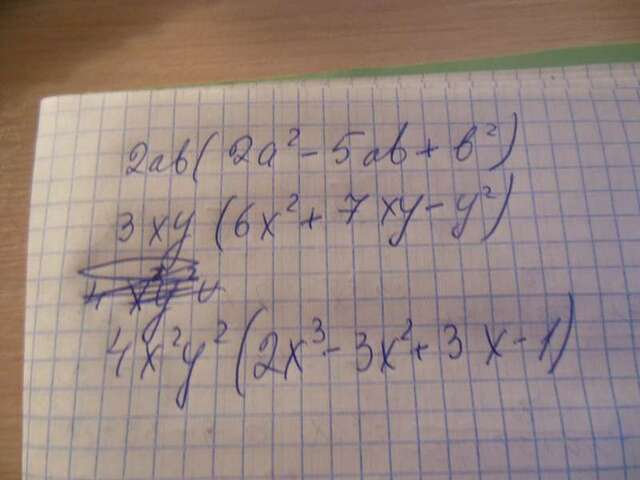 2ab(2a²-5ab+b²)
3xy(6x²+7xy-y²)
4x²y²(2x³-3x²+3x-1)